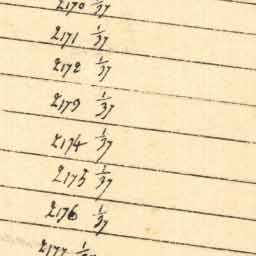 2170 1/37
2171 1/37
2172 1/37
2173 1/37
2174 1/37
2175 1/37
2176 1/37
2177